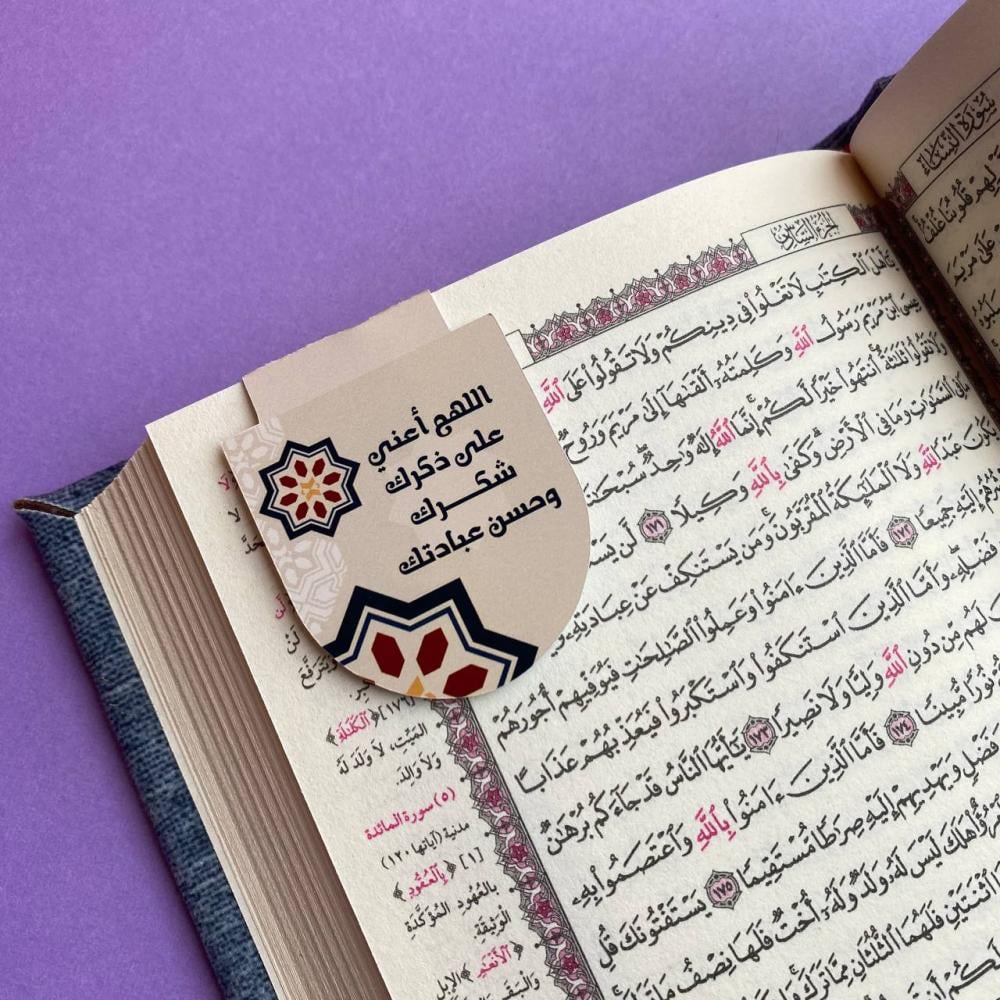 سورة النساء
الجزء السادس
اللهم أعني
على ذكرك
شكرك
وحسن عبادتك
ٱلْكِتَٰبِ لَا تَغْلُوا۟ فِى دِينِكُمْ وَلَا تَقُولُوا۟ عَلَى ٱللَّهِ
عِيسَى ٱبْنُ مَرْيَمَ رَسُولُ ٱللَّهِ وَكَلِمَتُهُۥٓ أَلْقَىٰهَآ إِلَىٰ مَرْيَمَ وَرُوحٌ
وَلَا تَقُولُوا۟ ثَلَٰثَةٌ ٱنتَهُوا۟ خَيْرًا لَّكُمْ إِنَّمَا ٱللَّهُ إِلَٰهٌ وَٰحِدٌ سُبْحَٰنَهُۥٓ
مَا فِى ٱلسَّمَٰوَٰتِ وَمَا فِى ٱلْأَرْضِ وَكَفَىٰ بِٱللَّهِ وَكِيلًا ١٧١ لَّن
عَبْدًا لِّلَّهِ وَلَا ٱلْمَلَٰٓئِكَةُ ٱلْمُقَرَّبُونَ وَمَن يَسْتَنكِفْ عَنْ عِبَادَتِهِۦ
إِلَيْهِ جَمِيعًا ١٧٢ فَأَمَّا ٱلَّذِينَ ءَامَنُوا۟ وَعَمِلُوا۟ ٱلصَّٰلِحَٰتِ فَيُوَفِّيهِمْ أُجُورَهُمْ
فَضْلِهِۦ وَأَمَّا ٱلَّذِينَ ٱسْتَنكَفُوا۟ وَٱسْتَكْبَرُوا۟ فَيُعَذِّبُهُمْ عَذَابًا
لَهُم مِّن دُونِ ٱللَّهِ وَلِيًّا وَلَا نَصِيرًا ١٧٣ يَٰٓأَيُّهَا ٱلنَّاسُ قَدْ جَآءَكُم بُرْهَٰنٌ
نُورًا مُّبِينًا ١٧٤ فَأَمَّا ٱلَّذِينَ ءَامَنُوا۟ بِٱللَّهِ وَٱعْتَصَمُوا۟ بِهِۦ
وَفَضْلٍ وَيَهْدِيهِمْ إِلَيْهِ صِرَٰطًا مُّسْتَقِيمًا ١٧٥ يَسْتَفْتُونَكَ قُلِ
هَلَكَ لَيْسَ لَهُۥ وَلَدٌ وَلَهُۥٓ أُخْتٌ فَلَهَا نِصْفُ مَا تَرَكَ
ٱثْنَتَيْنِ فَلَهُمَا ٱلثُّلُثَانِ مِمَّا تَرَكَ
[١٧٦] ﴿ٱلْكَلَٰلَةِ﴾
المَيِّت، لَا وَلَدَ لَهُ
وَلَا وَالِدَ
(٥) سورة المائدة
مدنية (آياتها ١٢٠)
[١] ﴿بِٱلْعُقُودِ﴾
بالعُهُودِ المُؤَكَّدَةِ
الوَثِيقَةِ
﴿ٱلْأَنْعَٰمِ﴾ الإبل